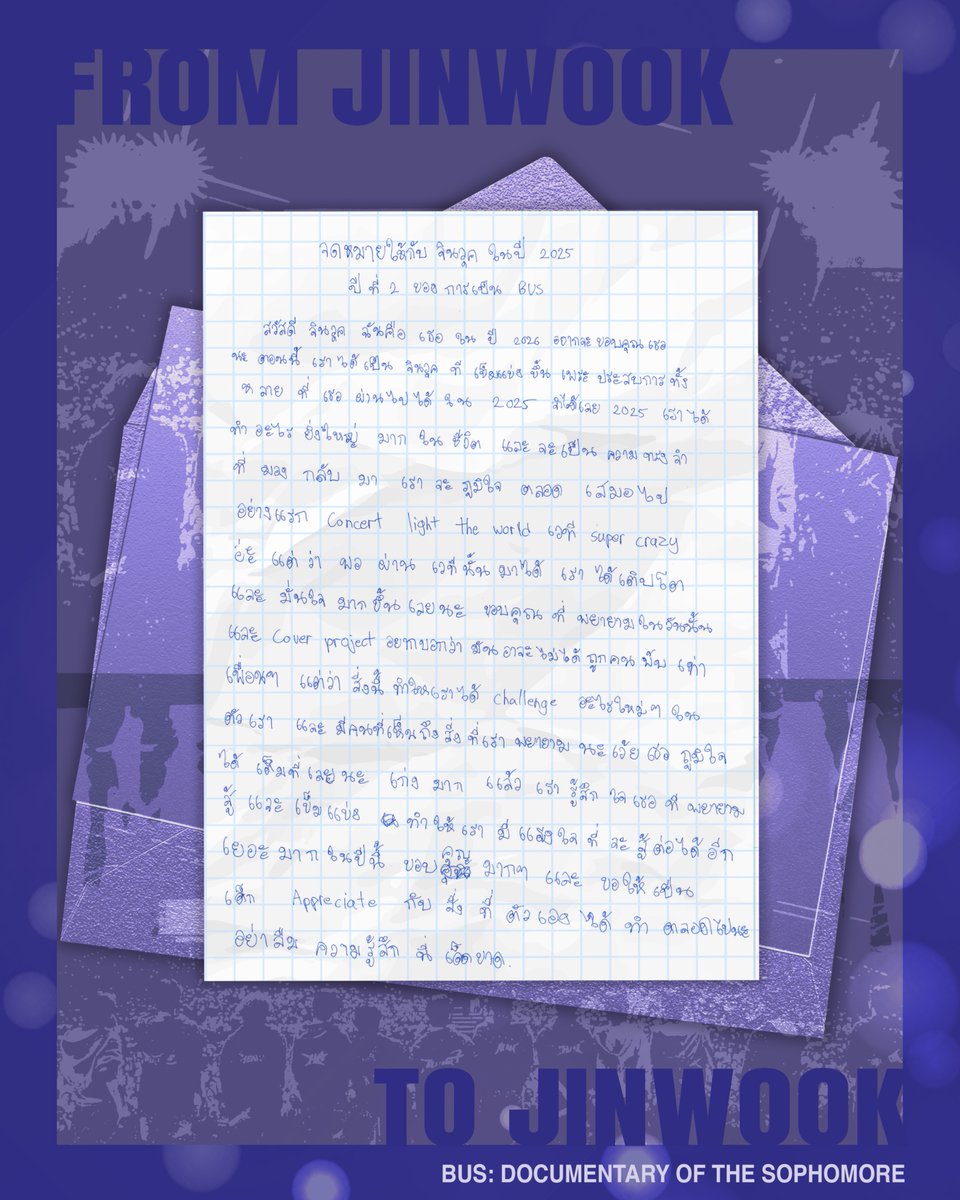 FROM JINWOOK
จดหมายให้กับ จินวุค ในปี 2025
ปี ที่ 2 ของ การเป็น BUS
สวัสดี จินวุค ฉันคือ เธอ ใน ปี 2026 อยากจะ ขอบคุณ เธอ
นะ ตอนนี้ เราได้ เป็น จินวุค ที่ เข็มแข่ง ขึ้น เพราะ ประสบการ ทั้ง
หลาย ที่ เธอ ผ่านไปได้ ใน 2025 2025 เราได้
ทำ อะไร ยิ่งใหญ่ มาก ใน ชีวิต และ จะเป็น ความ ทรง จำ
ที่ มอง กลับ มา เรา จะ ภูมิใจ ตลอด เสมอ ไป
อย่างแรก Concert light the world เวที super crazy
แต่ ว่า พอ ผ่าน เวที นั้น มาได้ เรา ได้เติบโต
และ มั่นใจ มาก ขึ้น เลยนะ ขอบคุณ ที่ พยายาม ในวันนั้น
และ Cover project อยากบอกว่า มันอาจจะไม่ได้ ถูกคน เท่า
เพื่อนๆ แต่ว่า สิ่งนี้ ทำให้เราได้ challenge อะไรใหม่ๆ ใน
ตัวเรา และ มีคนที่เห็นถึง สิ่ง ที่เรา พยายาม นะเว้ย เธอ ภูมิใจ
ได้ เต็มที่เลยนะ เก่ง มาก แล้ว เรา รู้สึก ใจ เธอ ที่ พยายาม
สู้ และ เข็มแข่ง ทำให้ เรา มี แรงใจ ที่ จะ สู้ ต่อได้ อีก
เยอะ มาก ในปีนี้ ขอบคุณ มากๆ และ ขอให้ เป็น
เด็ก Appreciate กับ สิ่ง ที่ ตัวเอง ได้ ทำ ตลอดไปนะ
อย่าลืม ความ รู้สึก นี้ เด็ดขาด.
TO JINWOOK
BUS: DOCUMENTARY OF THE SOPHOMORE